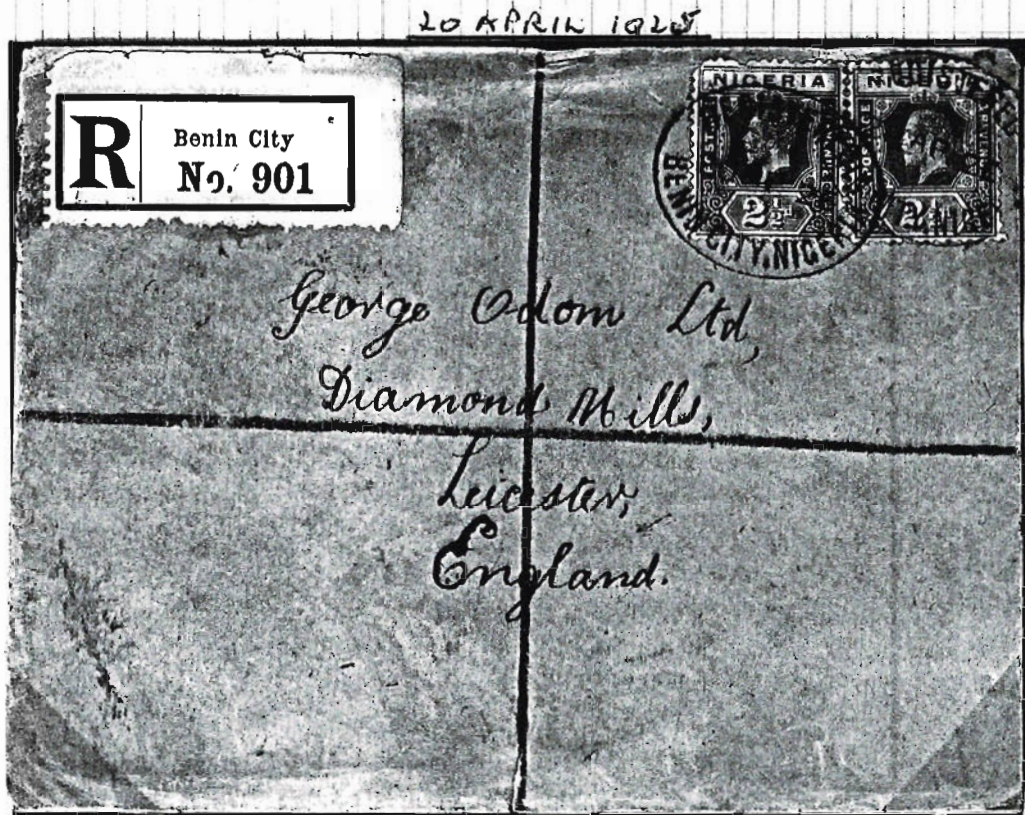 20 APRIL 1925
R
Benin City
No. 901
NIGERIA
2½d
BENIN CITY. NIGERIA
George Odom Ltd,
Diamond Mills,
Leicester,
England.